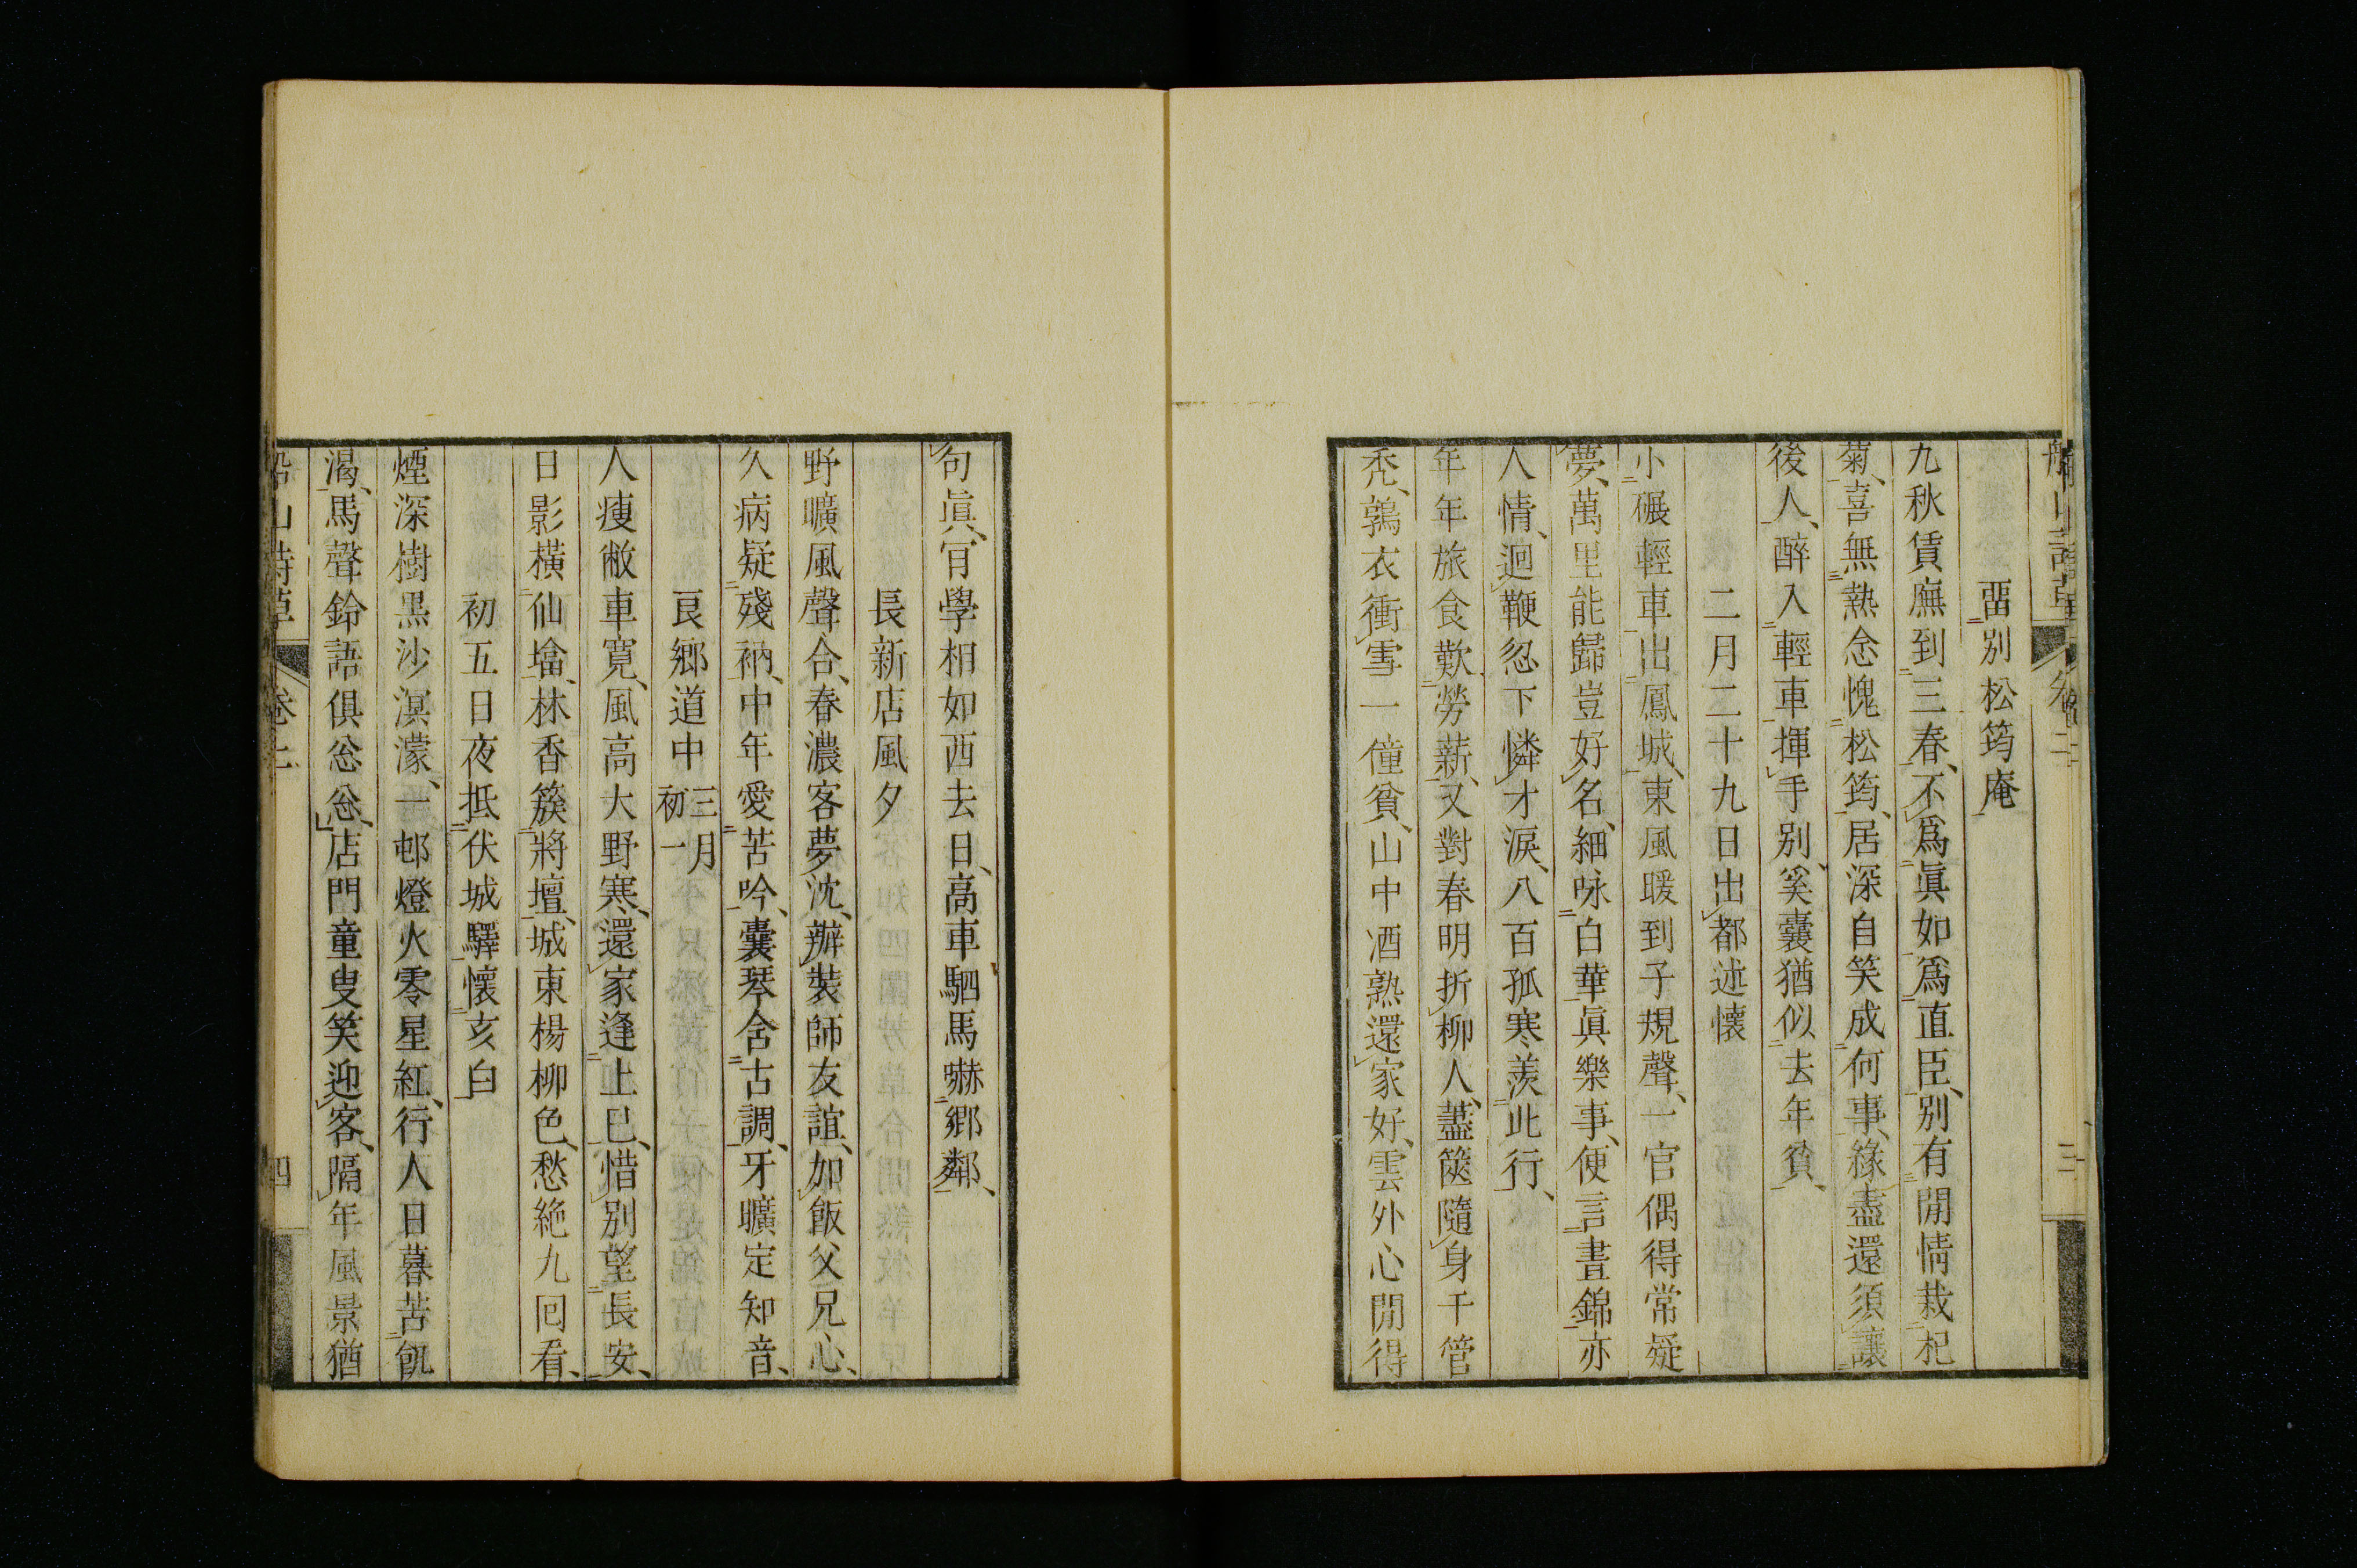 船山詩草 卷二 三
畱別松筠庵
九秋賃廡到三春、不爲眞如爲直臣、別有閒情栽杞
菊、喜無熱念愧松筠、居深自笑成何事、緣盡還須讓
後人、醉入輕車揮手別、奚囊猶似去年貧、
二月二十九日出都述懷
小碾輕車出鳳城、東風暖到子規聲、一官偶得常疑
夢、萬里能歸豈好名、細咏白華眞樂事、便言晝錦亦
人情、迴鞭忽下憐才淚、八百孤寒羨此行、
年年旅食歎勞薪、又對春明折柳人、藎篋隨身千管
禿、鶉衣衝雪一僮貧、山中酒熟還家好、雲外心閒得
句眞、肎學相如西去日、高車駟馬嚇鄉鄰、
長新店風夕
野曠風聲合、春濃客夢沈、辦裝師友誼、如飯父兄心、
久病疑殘衲、中年愛苦吟、囊琴舍古調、牙曠定知音、
良鄉道中 三月初一
人瘦敝車寬、風高大野寒、還家逢上巳、惜別望長安、
日影橫仙墖、林香簇將壇、城東楊柳色、愁絶九回看、
初五日夜抵伏城驛懷亥白
煙深樹黑沙溟濛、一邨燈火零星紅、行人日暮苦飢
渴、馬聲鈴語俱忩忩、店門童叟笑迎客、隔年風景猶
船山詩草 卷二 四